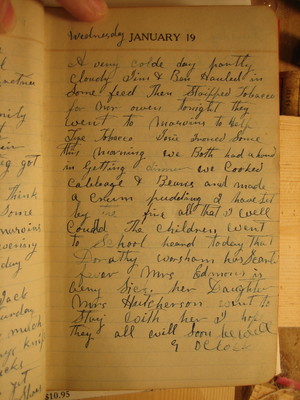 Wednesday JANUARY 19
A very colde day partly
cloudy Jim & Ben Hauled in
Some feed then Stripped Tobacco
for Mr owen tonight they
went to Marvins to Help
Tye Tobacco Irone Some
this morning we Both had a hand
in Getting dinner we Cooked
Cabbage & Beans and made
a Cream pudding I have set
by fire all that I well
Could The Children went
to School heard today that
Dorathy worsham has Scarlet
fever Mrs Edmons is
very Sick her Daughter
Mrs Hutcherson went to
Stay with her I hope
they all will Soon be well
9 Oclock
nity
t
air
eg got
Think
Some
marvins
day
Jack
much
$10.95